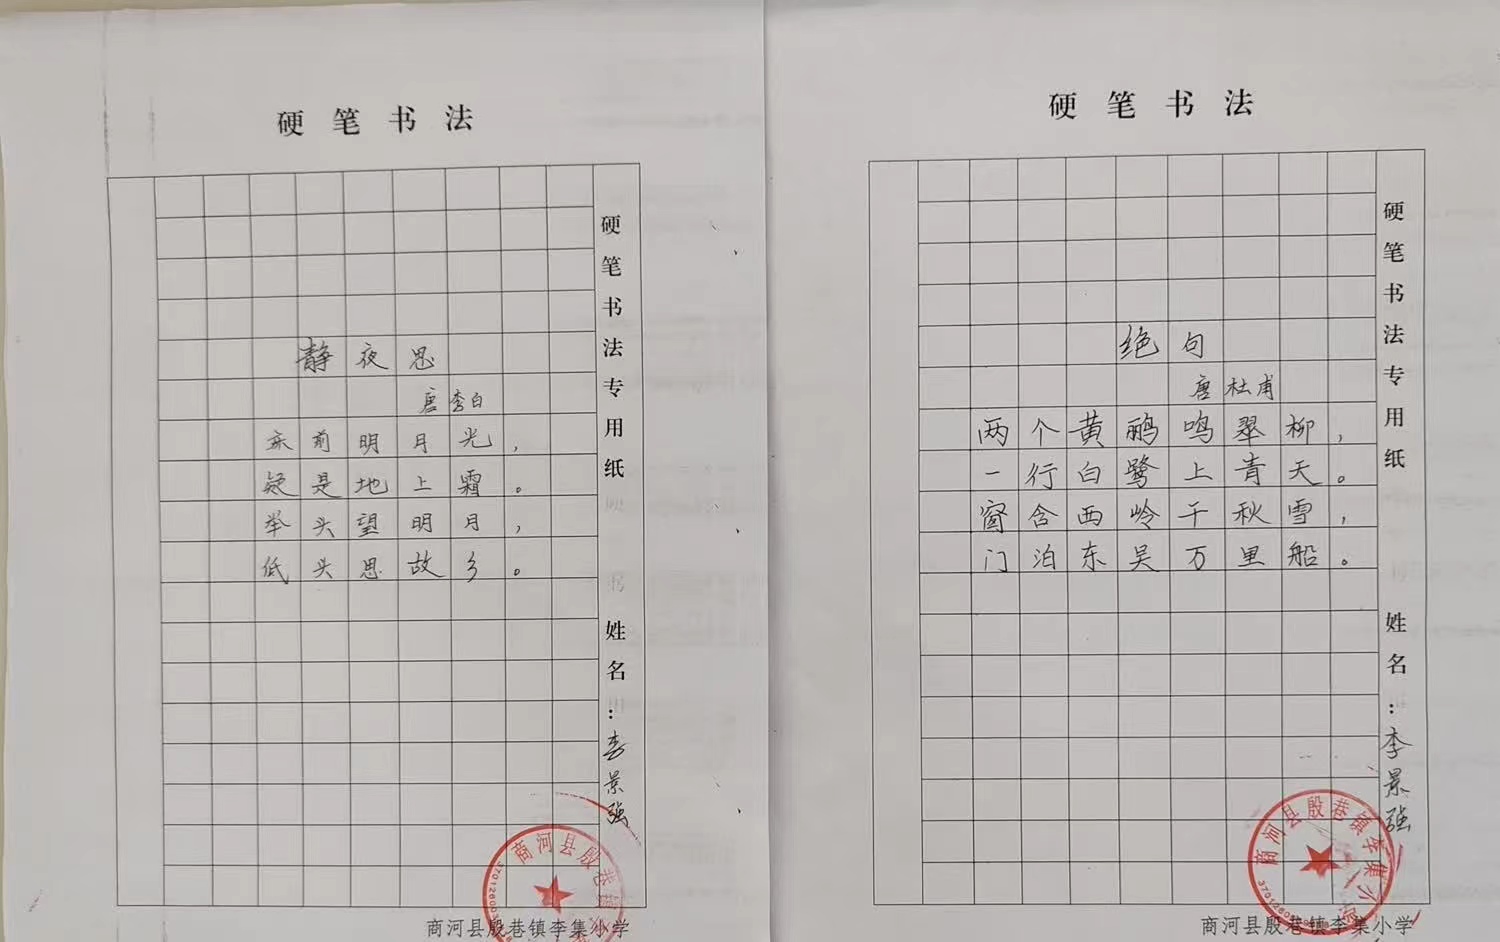 硬笔书法
静夜思
唐 李白
床前明月光，
疑是地上霜。
举头望明月，
低头思故乡。
硬笔书法专用纸
姓名：李景强
商河县殷巷镇
商河县殷巷镇李集小学
硬笔书法
绝句
唐 杜甫
两个黄鹂鸣翠柳，
一行白鹭上青天。
窗含西岭千秋雪，
门泊东吴万里船。
硬笔书法专用纸
姓名：李景强
商河县殷巷镇李集小学
商河县殷巷镇李集小学